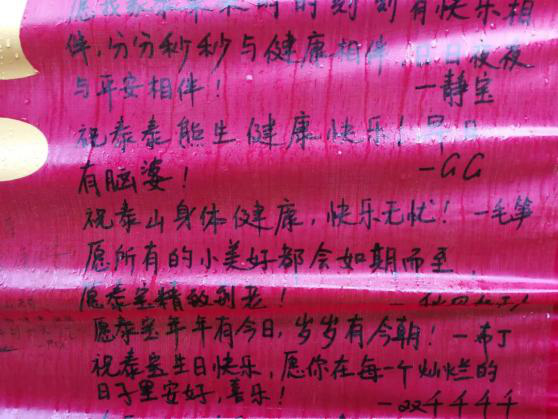 愿我家泰泰未来的时时刻刻有快乐相
伴,分分秒秒与健康相伴,日日夜夜
与平安相伴! —静宝
祝泰泰熊生健康快乐!早日
有脑婆! —GG
祝泰山身体健康,快乐无忧! —毛笋
愿所有的小美好都会如期而至
愿泰宝精致到老!
愿泰宝年年有今日,岁岁有今朝! —布丁
祝泰宝生日快乐,愿你在每一个灿烂的
日子里安好,喜乐! —双千千千千